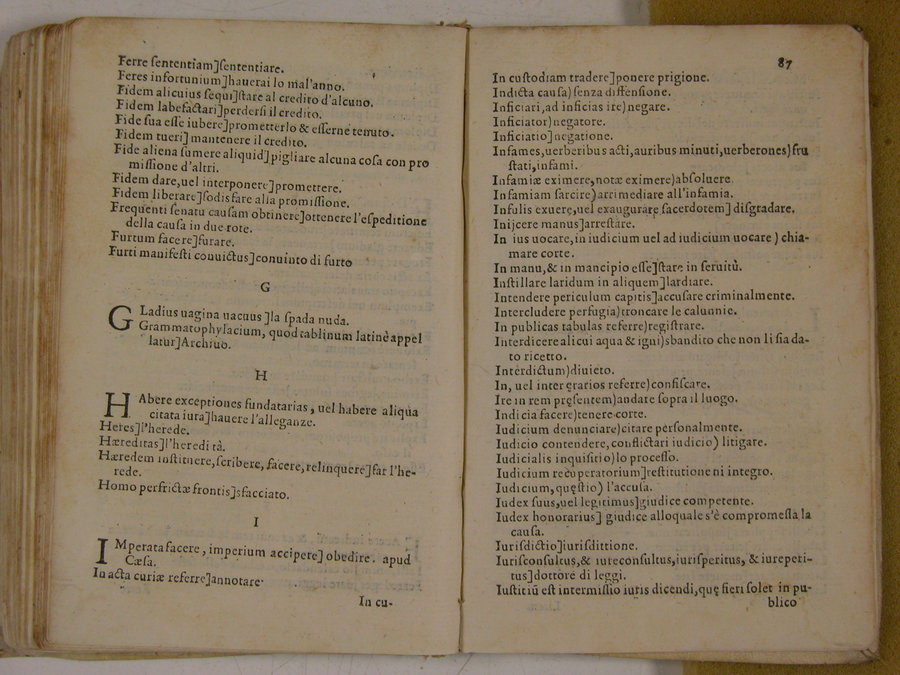 Ferre ſententiam]ſententiare.
Feres infortunium]hauerai lo mal'anno.
Fidem alicuius ſequi]ſtare al credito d'alcuno.
Fidem labefactari]perderſi il credito.
Fide ſua eſſe iubere]prometterlo & eſſerne tenuto.
Fidem tueri] mantenere il credito.
Fide aliena ſumere aliquid] pigliare alcuna coſa con pro
miſſione d'altri.
Fidem dare, uel interponere]promettere.
Fidem liberare]ſodisfare alla promiſſione.
Frequenti ſenatu cauſam obtinere]ottenere l'eſpeditione
della cauſa in due rote.
Furtum facere]furare.
Furti manifeſti conuictus]conuinto di furto
G
GLadius uagina uacuus]la ſpada nuda.
Grammatophylacium, quod tablinum latinè appel
latur]Archiuo.
H
HAbere exceptiones fundatarias, uel habere aliqua
citata iura]hauere l'alleganze.
Heres]l'herede.
Hæreditas]l'heredità.
Hæredem inſtituere, ſcribere, facere, relinquere]far l'he-
rede.
Homo perfrictæ frontis]sfacciato.
I
IMperata facere, imperium accipere] obedire. apud
Cæſa.
In acta curiæ referre]annotare
In cu-
87
In cuſtodiam tradere]ponere prigione.
Indicta cauſa) ſenza diffenſione.
Inficiari, ad inficias ire) negare.
Inficiator) negatore.
Inficiatio] negatione.
Infames, uerberibus acti, auribus minuti, uerberones) fru
ſtati, infami.
Infamiæ eximere, notæ eximere)abſoluere.
Infamiam ſarcire)arrimediare all'infamia.
Infulis exuere, uel exaugurare ſacerdotem] diſgradare.
Inijcere manus]arreſtare.
In ius uocare, in iudicium uel ad iudicium uocare) chia-
mare corte.
In manu, & in mancipio eſſe]ſtare in ſeruitù.
Inſtillare laridum in aliquem]lardiare.
Intendere periculum capitis]accuſare criminalmente.
Intercludere perfugia)troncare le calunnie.
In publicas tabulas referre)regiſtrare.
Interdicere alicui aqua & igni)sbandito che non li ſia da-
to ricetto.
Interdictum)diuieto.
In, uel inter ęrarios referre)confiſcare.
Ire in rem pręſentem)andare ſopra il luogo.
Indicia facere)tenere corte.
Iudicium denunciare)citare perſonalmente.
Iudicio contendere, conflictari iudicio) litigare.
Iudicialis inquiſitio)lo proceſſo.
Iudicium recuperatorium]reſtitutione ni integro.
Iudicium, quęſtio) l'accuſa.
Iudex ſuus, uel legitimus]giudice competente.
Iudex honorarius] giudice alloquale s'è compromeſſa la
cauſa.
Iuriſdictio]iuriſdittione.
Iuriſconſultus, & iureconſultus, iuriſperitus, & iureperi-
tus]dottore di leggi.
Iuſtitiũ eſt intermiſſio iuris dicendi, quę fieri ſolet in pu-
blico